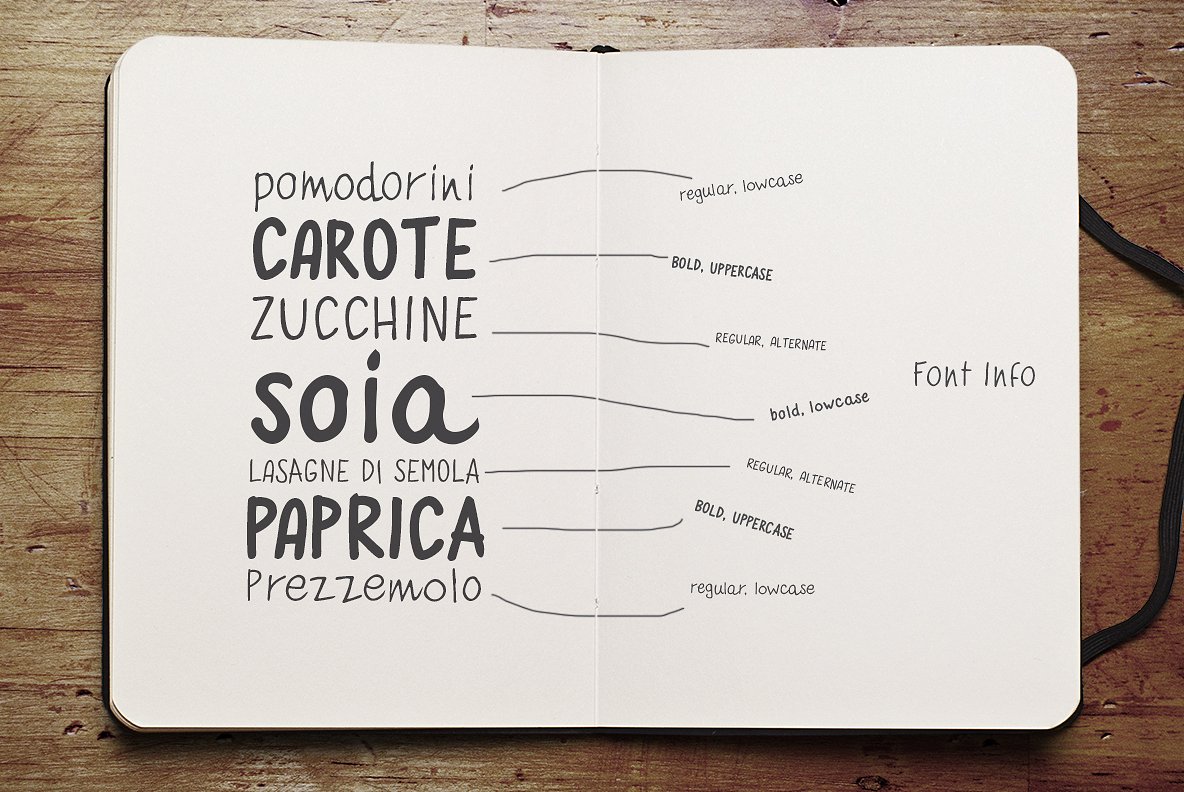 pomodorini
CAROTE
ZUCCHINE
soia
LASAGNE DI SEMOLA
PAPRICA
Prezzemolo
regular, lowcase
BOLD, UPPERCASE
REGULAR, ALTERNATE
bold, lowcase
REGULAR, ALTERNATE
BOLD, UPPERCASE
regular, lowcase
Font Info